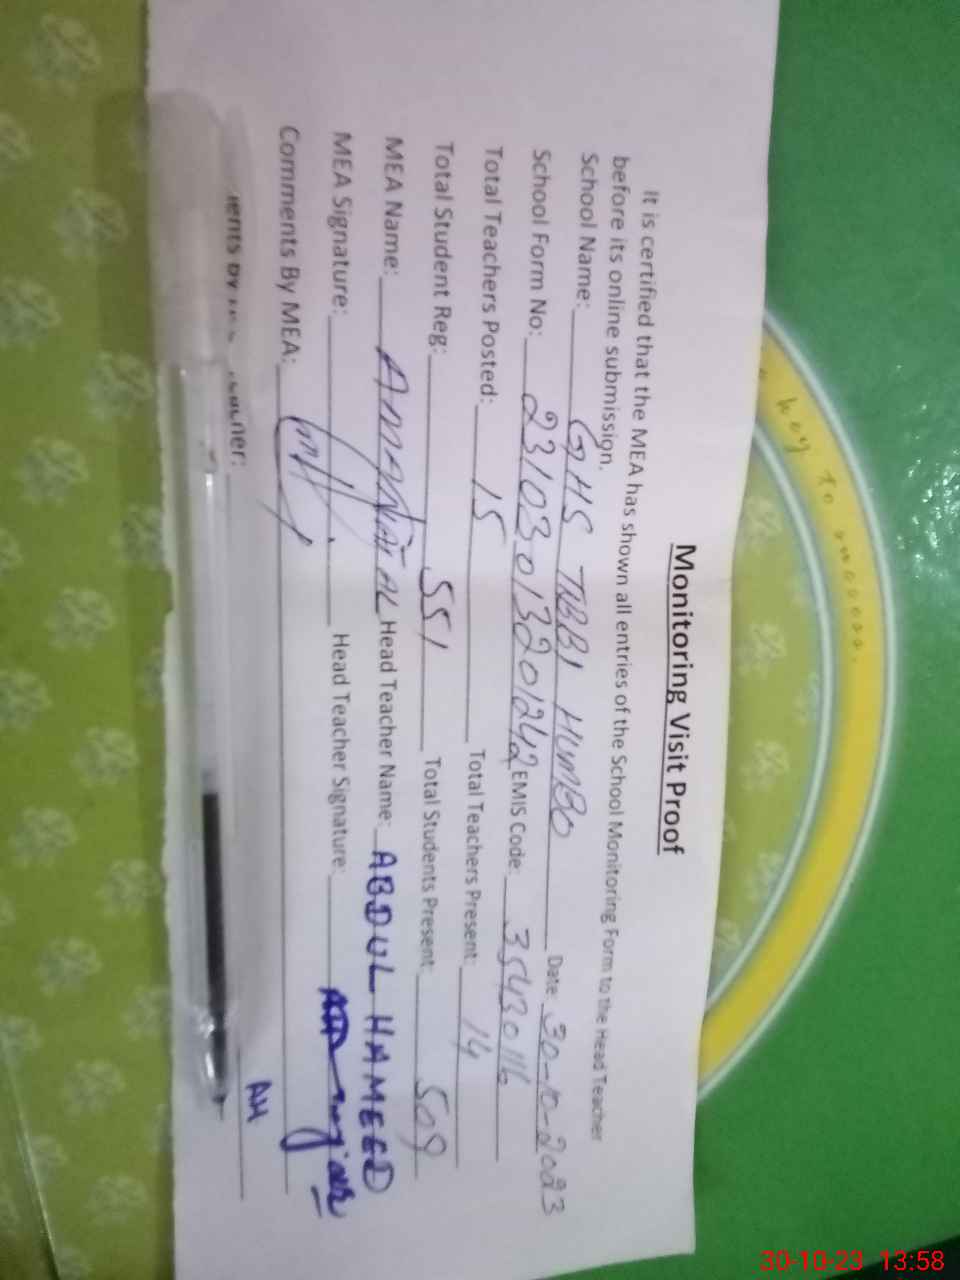 Monitoring Visit Proof
It is certified that the MEA has shown all entries of the School Monitoring Form to the Head Teacher
before its online submission.
School Name: GHS TABBI HUMBO Date: 30-10-2023
School Form No: 23103013201242 EMIS Code: 35430116
Total Teachers Posted: 15 Total Teachers Present: 14
Total Student Reg: 551 Total Students Present: 509
MEA Name: Head Teacher Name: ABDUL HAMEED
MEA Signature: Head Teacher Signature:
Comments By MEA:
AH
key to success.
30-10-23 13:58